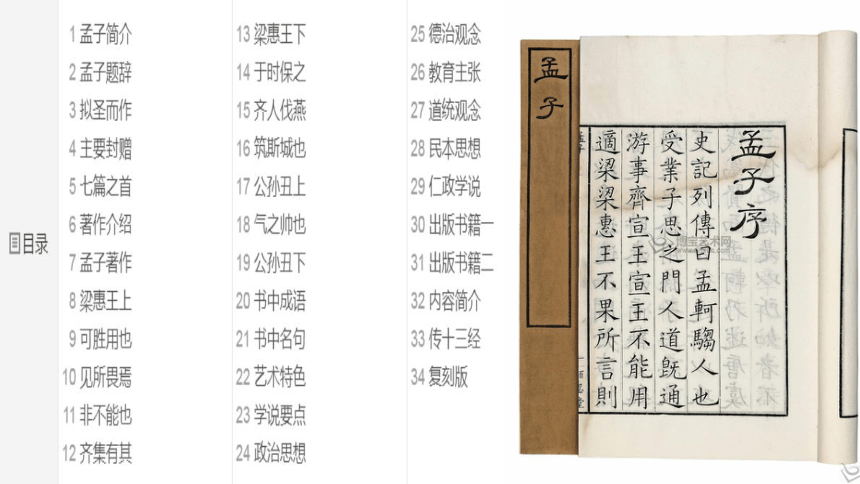 目录
1 孟子简介
2 孟子题辞
3 拟圣而作
4 主要封赠
5 七篇之首
6 著作介绍
7 孟子著作
8 梁惠王上
9 可胜用也
10 见所畏焉
11 非不能也
12 齐集有其
13 梁惠王下
14 于时保之
15 齐人伐燕
16 筑斯城也
17 公孙丑上
18 气之帅也
19 公孙丑下
20 书中成语
21 书中名句
22 艺术特色
23 学说要点
24 政治思想
25 德治观念
26 教育主张
27 道统观念
28 民本思想
29 仁政学说
30 出版书籍一
31 出版书籍二
32 内容简介
33 传十三经
34 复刻版
孟子
孟子序
史記列傳曰孟軻騶人也
受業子思之門人道既通
游事齊宣王宣王不能用
適梁梁惠王不果所言則